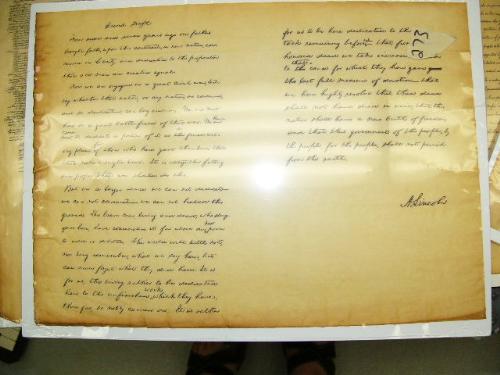 Second Draft
Four score and seven years ago our fathers
brought forth, upon this continent, a new nation, con-
ceived in liberty and dedicated to the proposition
that all men are created equal.
Now we are engaged in a great civil war, test-
ing whether that nation, or any nation so conceived,
and so dedicated, can long endure. We are met
here on a great battle-field of that war. We
have to dedicate a portion of it as the final rest-
ing place of those who here gave their lives that
that nation might live. It is altogether fitting
and proper that we should do this.
But in a larger sense we can not dedicate
we can not consecrate we can not hallow this
ground. The brave men, living and dead, who strug-
gled here, have consecrated it far above our power
to add or detract. The world will little note,
nor long remember, what we say here, but
can never forget what they did here. It is
for us, the living, rather to be dedicated
work
here to the unfinished, which they have,
thus far, so nobly carried on. It is rather
for us to be here dedicated to the
task remaining before us that from
these
honored dead we take increased
the cause for which they here gave
the last full measure of devotion that
we here highly resolve that these dead
shall not have died in vain; that the
nation shall have a new birth of freedom,
and that this government of the people, by
the people, for the people, shall not perish
from this earth.
A. Lincoln